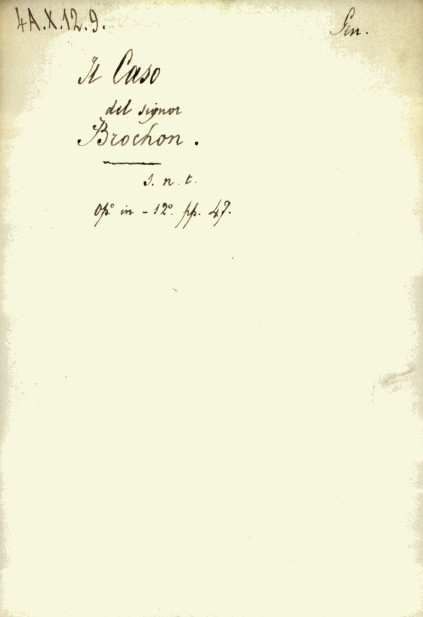 4A.X.12.9.
Gen.
Il Caso
del signor
Brochon.
s. n. t.
op.º in-12º. pp. 47.